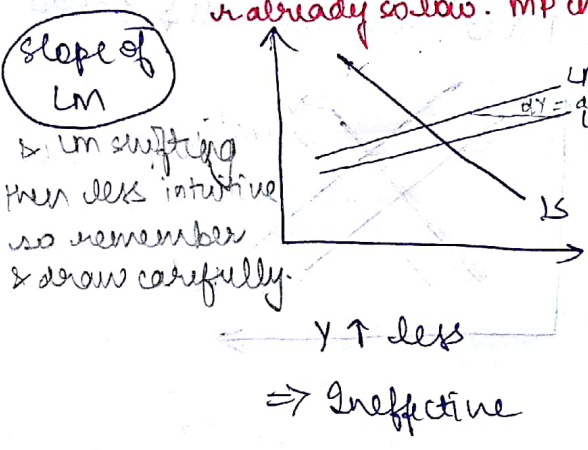 r already so low. MP
Slope of
LM
& LM shifting
then less intuitive
so remember
& draw carefully.
dY =
IS
Y ↑ less
⇒ Ineffective